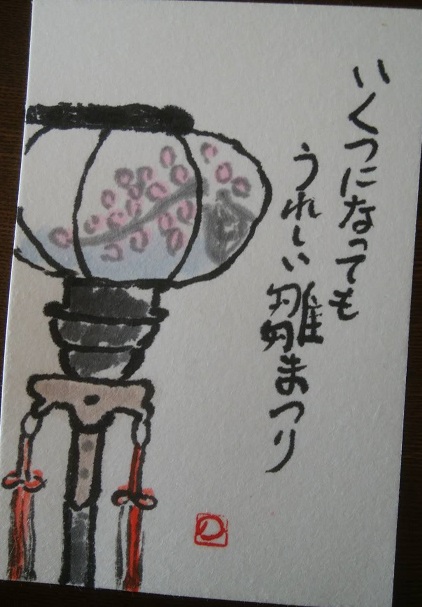 いくつになっても
うれしい雛まつり
の